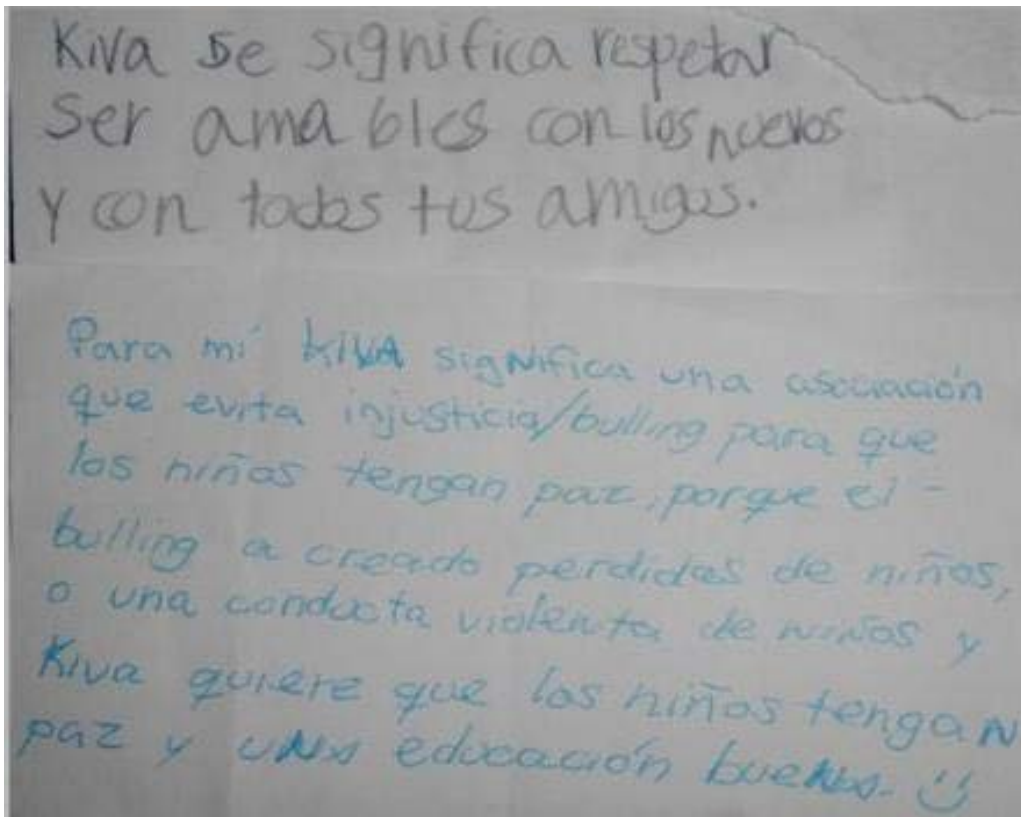 Kiva se significa respetar
ser amables con los nuevos
y con todos tus amigos.
Para mí KIVA significa una asociación
que evita injusticia/bulling para que
los niños tengan paz, porque el -
bulling a creado perdidas de niños,
o una conducta violenta de niños y
Kiva quiere que los niños tengan
paz y una educación buena. :)